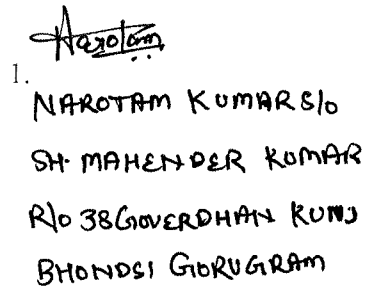 Narotam
1.
NAROTAM KUMAR S/o
SH. MAHENDER KUMAR
R/o 38 GOVERDHAN KUNJ
BHONDSI GORUGRAM